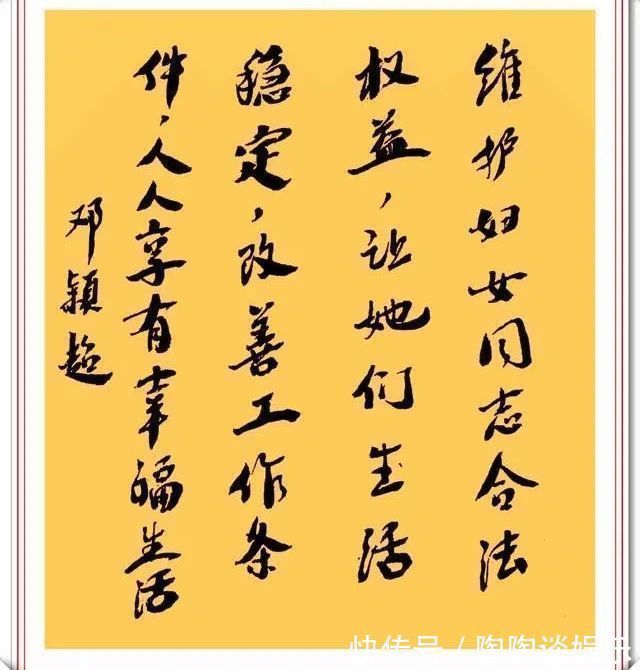 维护妇女同志合法
权益，让她们生活
稳定，改善工作条
件，人人享有幸福生活
邓颖超
快传号 / 陶陶谈娱乐